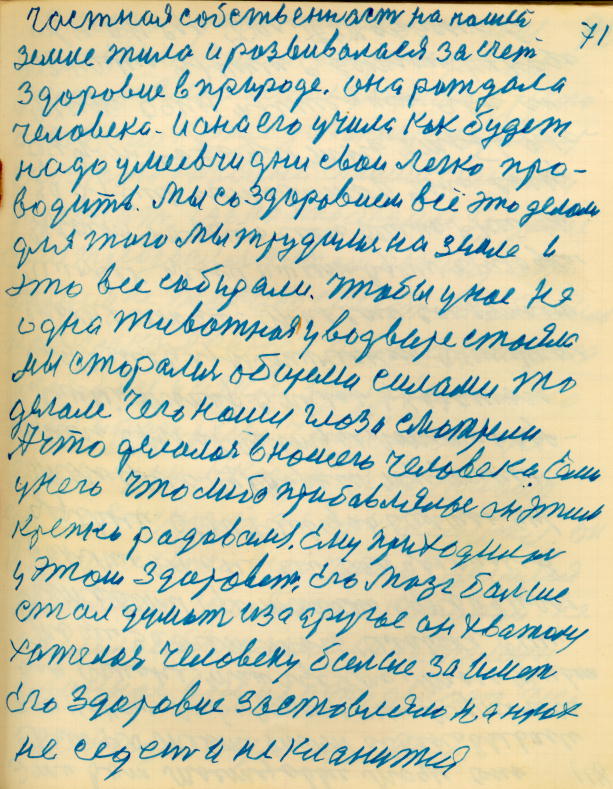 71
частная собственаст на нашей
земле жила и розвивалася за счет
здоровие в природе. она рождала
человека. и она его учила как будет
надо умеевчи дни свои легко про-
водить. мы со здоровием всё это делом
для этого мы трудилися на земле и
это все собирали. чтобы у нас не
одна животная у водваре стояла
мы старались общеми силами это
делале чего наши глаза смотрели
А что делалос в нашего человека Если
у него что либо прибавлялос он этим
крепко радовался. Ему приходилос
у этом здороветь, его мозг болше
стал думат и за другое он хватолу
хателос человеку болше заимет
Его здоровие заставляло на ногах
не седет и не кланится